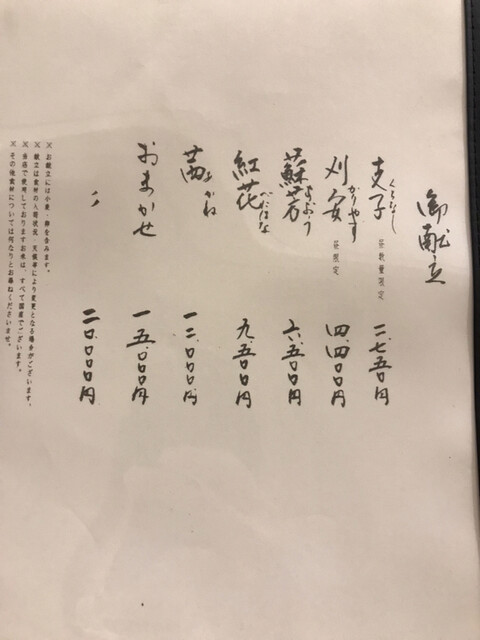 御献立
支子 くちなし 昼数量限定 二、七五〇円
刈安 かりやす 昼限定 四、四〇〇円
蘇芳 すおう 六、五〇〇円
紅花 べにばな 九、五〇〇円
茜 あかね 一二、〇〇〇円
おまかせ 一五、〇〇〇円
〃 二〇、〇〇〇円
※ お献立には小麦・卵を含みます。
※ 献立は食材の入荷状況・天候等により変更となる場合がございます。
※ 当店で使用しておりますお米は、すべて国産でございます。
※ その他食材については何なりとお尋ねくださいませ。